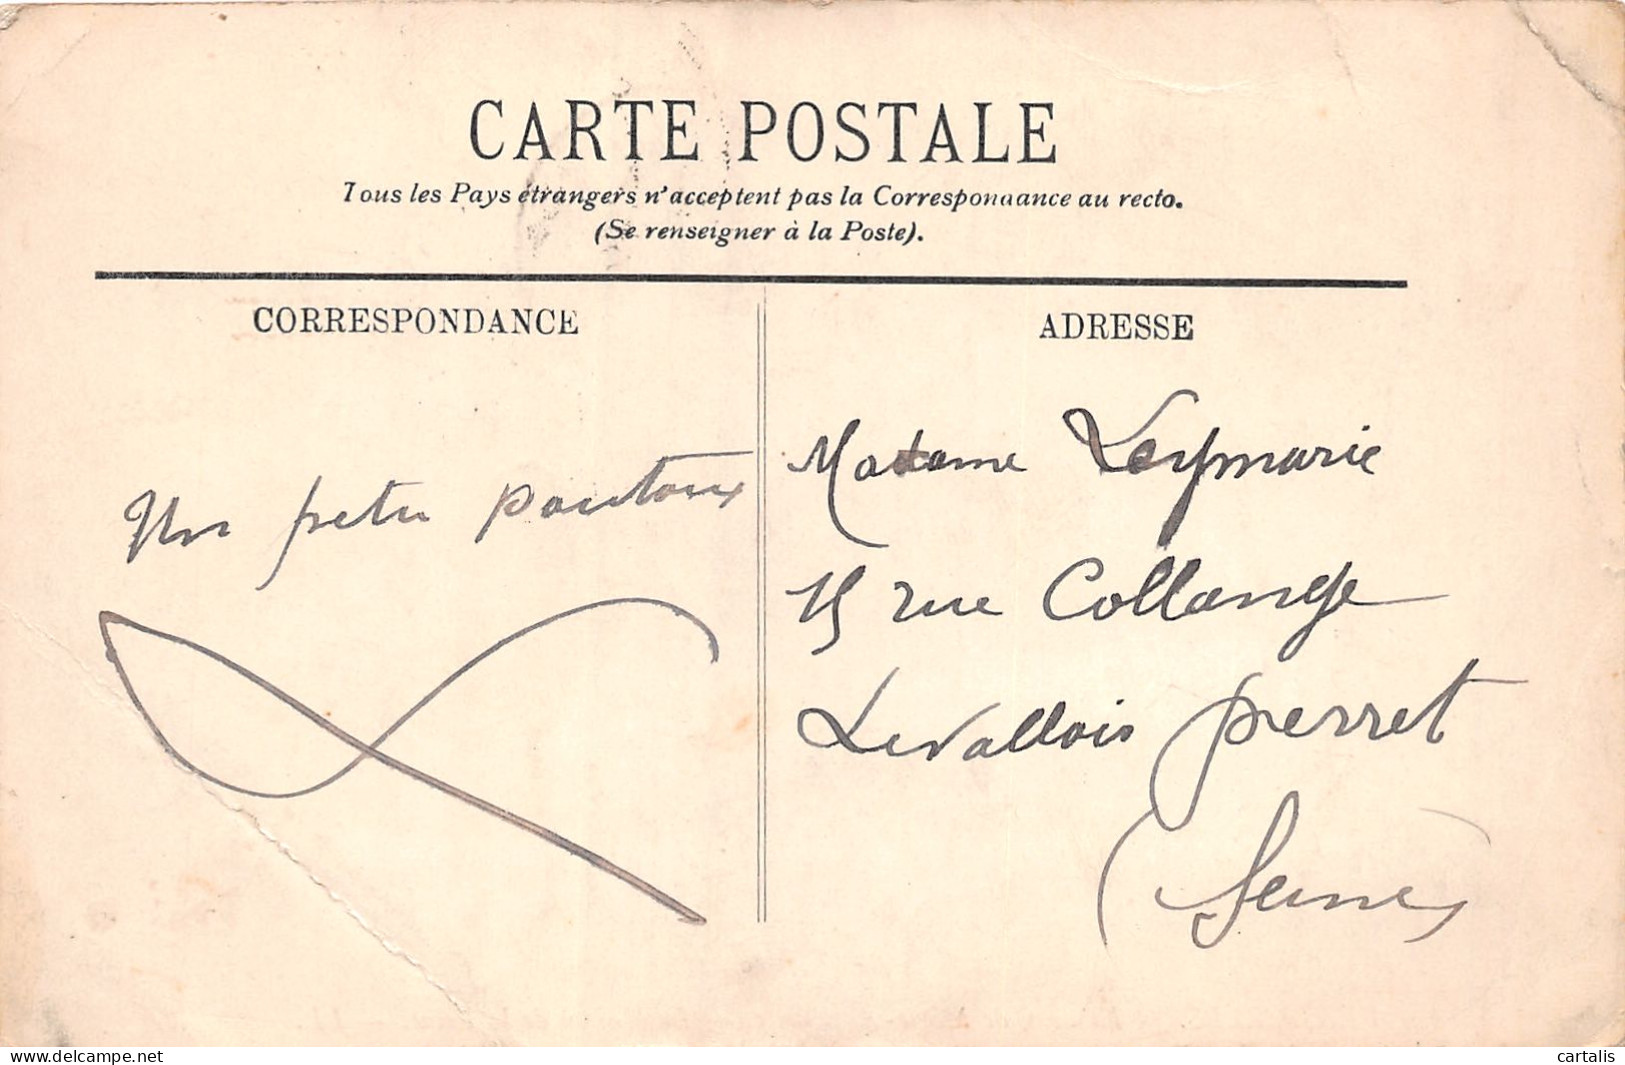 CARTE POSTALE
Tous les Pays étrangers n'acceptent pas la Correspondance au recto.
(Se renseigner à la Poste).
CORRESPONDANCE
ADRESSE
Un petit
Madame Leymarie
15 rue Collange
Levallois perret
(Seine)
delcampe.net
cartalis